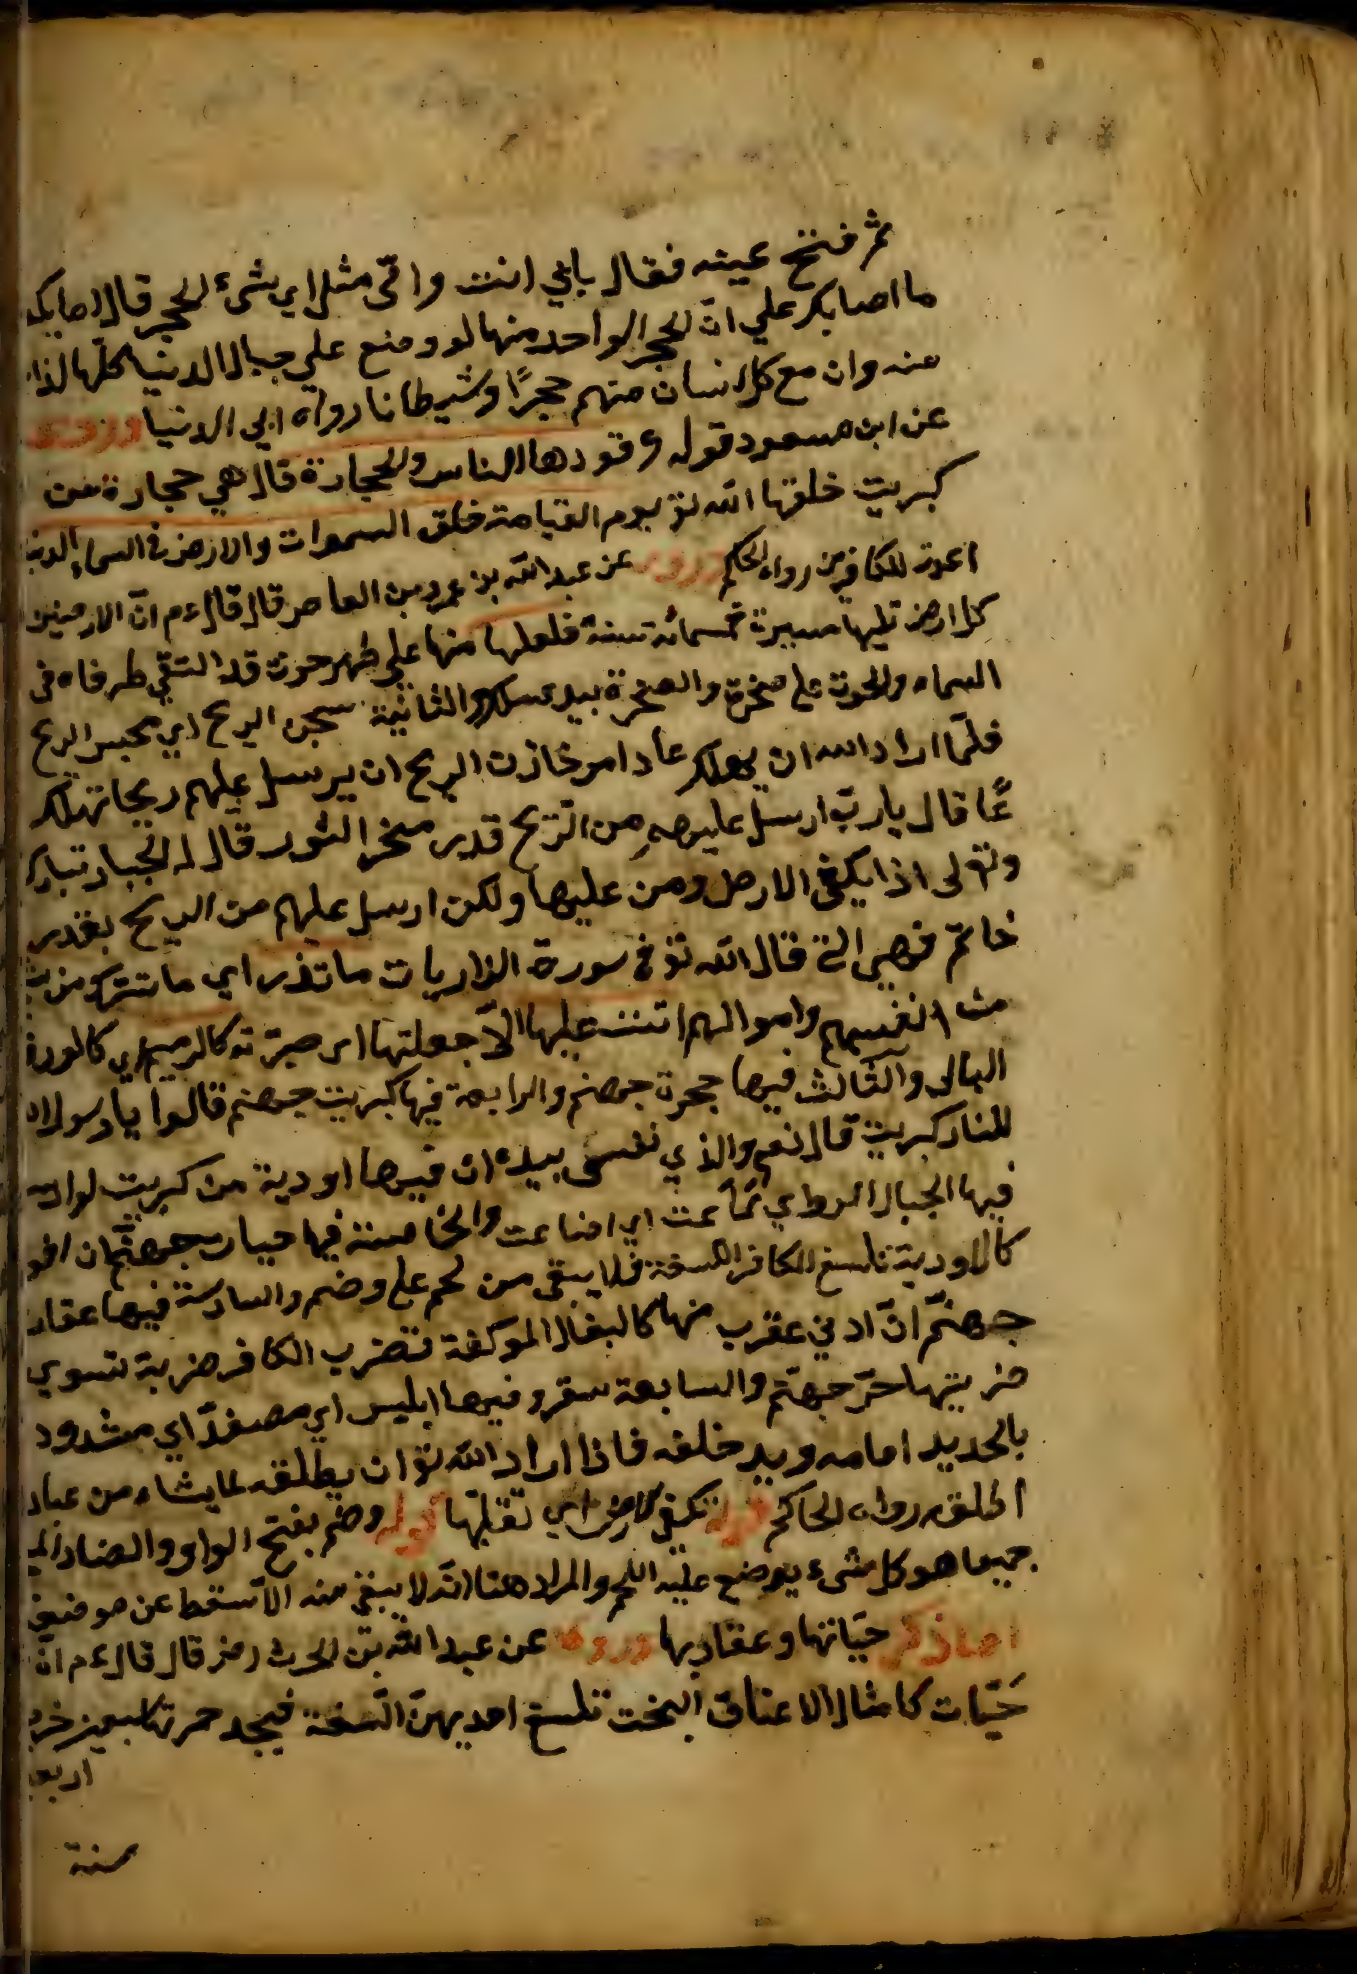 ثم فتح عينه فقال بابي انت وامّي مثل اي شئ الحجر قال اما يك
ما اصابكم علي انّ الحجر الواحد منها لو وضع علي جبال الدنيا كلّها لذا
منه وان مع كل انسان منهم حجرًا وشيطانا رواه ابي الدنيا وروي
عن ابن مسعود قوله وقودها الناس والحجارة قال هي حجارة من
كبريت خلقها الله تع يوم القيامة خلق السموات والارض في السماء الدنيا
اعدت للكافرين رواه الحاكم وروي عن عبد الله بن عمرو بن العاص قال قال ءم انّ الارضين
كل ارض تليها مسيرة خمسمائة سنة فلعلها منها علي ظهر حوت قد التقي طرفاه في
السماء والحوت على صخرة والصخرة بيد ملك والثانية سجن الريح اي محبس الريح
فلمّا اراد الله ان يهلك عادا امر خازن الريح ان يرسل عليهم ريحا تهلك
عًا قال يا ربّ ارسل عليهم من الرّيح قدر منخر الثور قال له الجبار تبارك
وتعلى اذا يكفئ الارض ومن عليها ولكن ارسل عليهم من الريح بقدر
خاتم فهي التي قال الله تع في سورة الذاريات ما تذر اي ما تترك من
من انفسهم واموالهم اتت عليها الّا جعلتها اي صيّرته كالرميم اي كالورق
البالى والثّالث فيها حجرة جهنم والرابعة فيها كبريت جهنم قالوا يا رسول الله
للنار كبريت قال نعم والذي نفسى بيده ان فيها اودية من كبريت لو ارسل
فيها الجبال الروا‌سي لماعت اي اضاعت والخامسة فيها حيات جهنّم ان افو
كالاودية تلسع الكافر اللسعة فلا يبقى من لحم على وضم والسادسة فيها عقار
جهنّم انّ ادني عقرب منها كالبغال الموكفة تضرب الكافر ضربة تنسوي
ضربتها حرّ جهنّم والسابعة سقر وفيها ابليس اي مصفدّ اي مشدود
بالحديد امامه ويد خلفه فاذا اراد الله تع ان يطلقه لما يشاء من عباد
اطلقه رواه الحاكم قوله تكفي الارض اي تقلبها قوله وضم بفتح الواو والضاد الم
جميعا هو كل شئ يوضع عليه اللحم والمراد هنا انّه لا يبقي منه الّا سقط عن موضعه
اما ذكر حيّاتها وعقاربها وروي عن عبد الله بن الحرث رضى قال قال ءم انّ
حَيّات كامثال الاعناق البخت تلسع احديهنّ اللسعة فيجد حمرتها سبعين خر
اربع
سنة